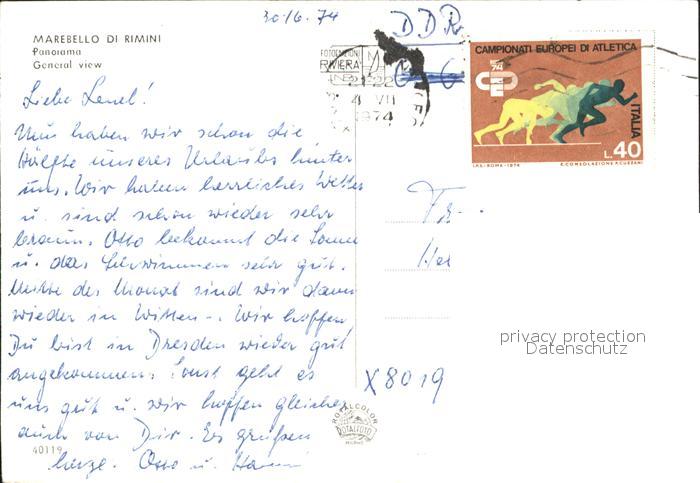 30/6.74
DDR
MAREBELLO DI RIMINI
Panorama
General view
RIVIERA
21-22
4 VII
1974
CAMPIONATI EUROPEI DI ATLETICA
74
ITALIA
L.40
I.P.S.-ROMA-1974
E.CONSOLAZIONE R.CUZZANI
Liebe Lenel!
Nun haben wir schon die
Hälfte unseres Urlaubs hinter
uns. Wir haben herrliches Wetter
u. sind schon wieder sehr
braun. Otto bekommt die Sonne
u. das Schwimmen sehr gut.
Mitte des Monat sind wir dann
wieder in Witten-. Wir hoffen
Du bist in Dresden wieder gut
angekommen. Sonst geht es
uns gut u. wir hoffen gleiches
auch von Dir. Es grüßen
herzl. Otto u.
Fr.
X8019
privacy protection
Datenschutz
ROTALCOLOR
ROTALFOTO
MILANO
40119